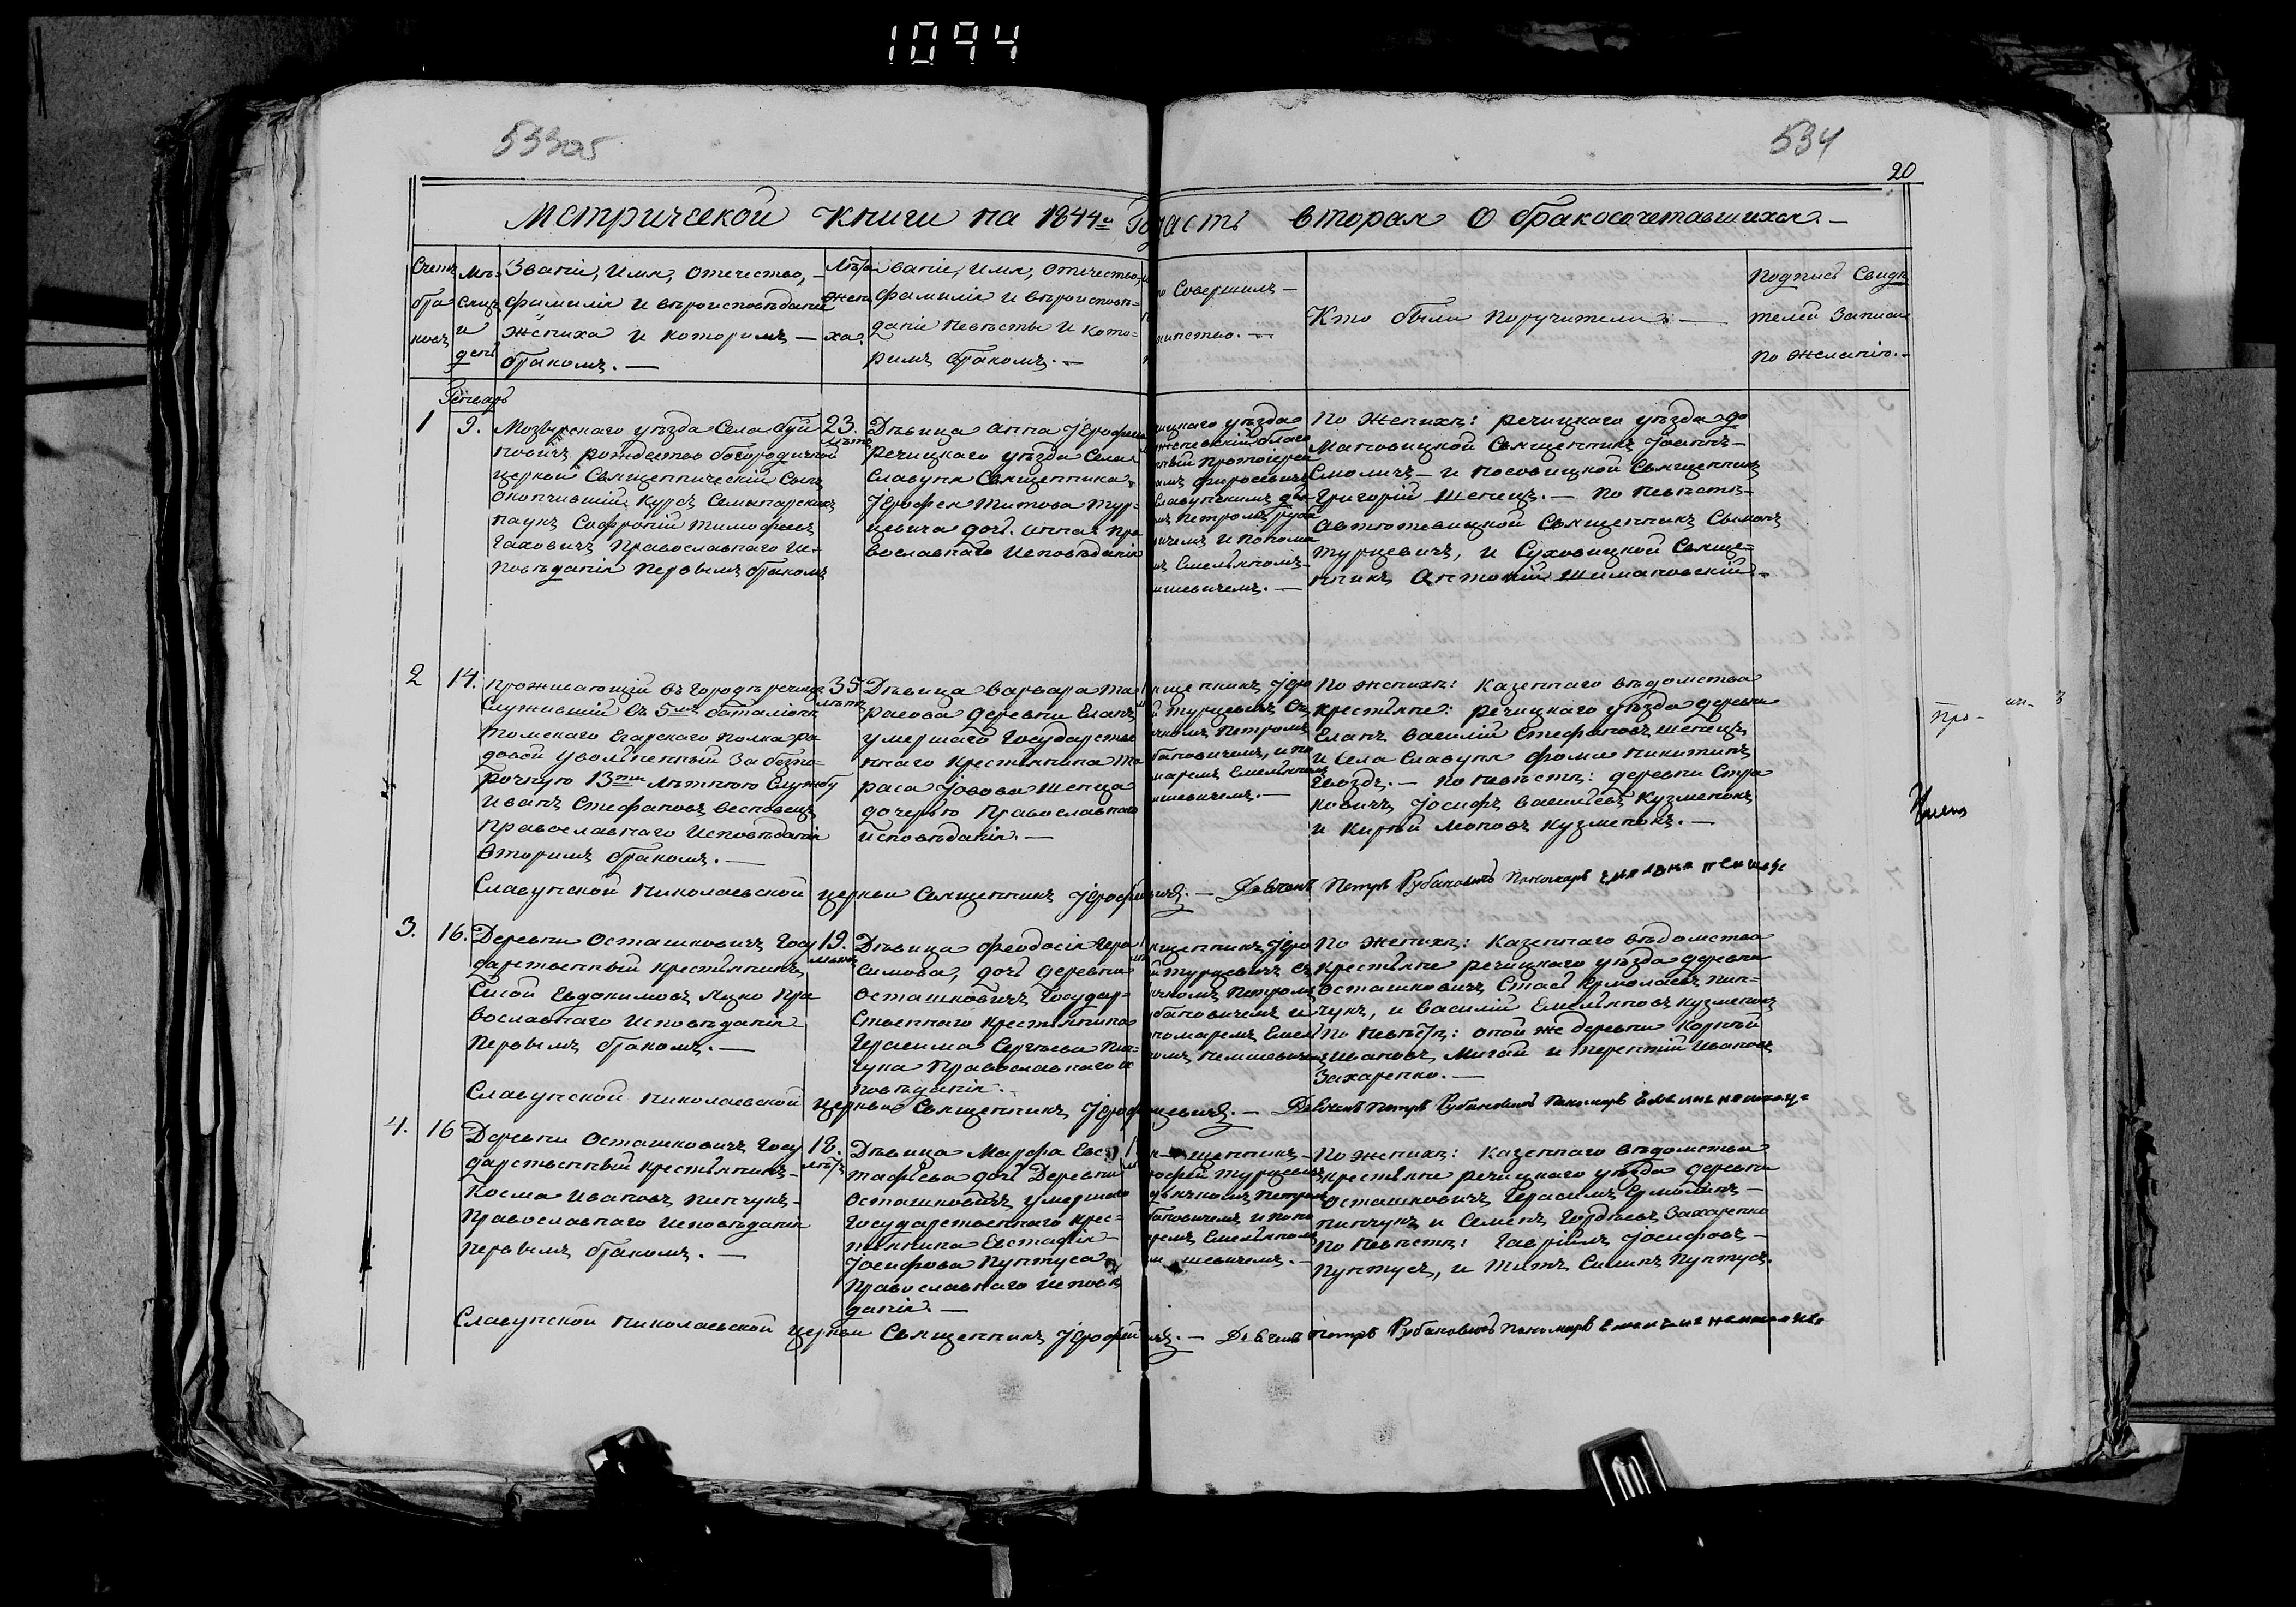 1094
533об
534
20
Метрической Книги на 1844й Го
часть вторая О бракосочетавшихся. —
Счетъ браковъ
Мѣсяцъ и день
Званіе, Имя, Отечество, —
фамилія и вѣроисповѣданіе
жениха и которымъ —
бракомъ. —
Лѣта жениха.
Званіе, Имя, Отечество,
фамилія и вѣроисповѣ-
даніе невѣсты и кото-
римъ бракомъ. —
Совершилъ —
таинство. —
Кто были Поручители. —
Подпись Свидѣ
телей Записи
по желанію. —
Генварь
1
9.
Мозырскаго уѣзда Села Буй
новичъ рождество богородичной
церкви Священническій Сынъ
окончившій Курсъ Семынарскихъ
наукъ Софроній Тимофеевъ
Гаховичъ Православнаго Ис-
повѣданія Первымъ бракомъ
23.
лѣтъ
Дѣвица Анна Іерофеева
речицкаго уѣзда Села
Славуня Священника
Іерофея Титова Тур-
цевича дочь Анна Пра
вославнаго Исповѣданія
ицкаго уѣзда
благо
ный протоіерей
Славунскимъ
мъ Петромъ Руба
ичемъ и Понома
мъ Емельяномъ
мшевичемъ. —
По Женихѣ: речицкаго уѣзда до
мановицкой Священникъ Іоаннъ —
Смоличъ — и носовицкой Священникъ
Григорій Шенецъ. — По невѣстѣ —
Автютевицкой Священникъ Сымонъ
Турцевичъ, и Суховицкой Свяще-
нникъ Антоній Шимановскій. —
2
14.
Проживающій въ городѣ речицѣ
Служившій въ 5мъ баталіонѣ
Томскаго Егарскаго полка ря
довой уволненный за безпо-
рочную 13ти лѣтнюю Службу
Иванъ Стефановъ Весновецъ
Православнаго Исповѣданія
вторимъ бракомъ. —
35
лѣтъ
Дѣвица Варвара Та
расова деревни Еланъ
умершаго Государстве
ннаго Крестьянина Та
раса Іовова Шенца
дочерью Православнаго
Исповѣданія. —
ященникъ Іеро
й Турцевичъ Съ
ячкомъ Петромъ
бановичемъ, и по
маремъ Емельяномъ
мшевичемъ. —
По женихѣ: Казеннаго вѣдомства
крестьяне: речицкаго уѣзда деревни
Еланъ Василій Стефановъ Шенецъ
и Села Славуня Фома Никитинъ
Гвоздь. — По невѣстѣ: деревни Стра
ковичъ Іосифъ Васильевъ Кузменокъ
и Кирѣй Леоновъ Кузменокъ. —
Славунской Николаевской церкви Священникъ Іерофей
Дьячекъ Петръ Рубановичъ Пономарь
3.
16.
Деревни Осташковичъ Госу
дарственный Крестьянинъ
Сисой Евдокимовъ Яцко Пра
вославнаго Исповѣданія
Первымъ бракомъ. —
19.
Дѣвица Феодосія Гера
симова, дочь деревни
Осташковичъ Государ-
ственнаго Крестьянина
Герасима Сергѣева Пин-
чука Православнаго И
повѣданія. —
ященникъ Іеро
й Турцевичъ Съ
ячкомъ Петромъ
бановичемъ и
номаремъ Емел
омъ Немшевичемъ
По женихѣ: Казеннаго вѣдомства
Крестьяне речицкаго уѣзда деревни
Осташковичъ Стась Ермолаевъ Пин-
чукъ, и Василій Емельяновъ Кузменокъ
По невѣстѣ: оной же деревни Корнѣй
Ивановъ Мигай и Терентій Ивановъ
Захаренко. —
Славунской Николаевской церкви Священникъ
Дьячекъ Петръ Рубановичъ Пономарь
4.
16
Деревни Осташковичъ Госу
дарственный Крестьянинъ —
Косма Ивановъ Пинчукъ —
Православнаго Исповѣданія
Первымъ бракомъ. —
18.
лѣтъ
Дѣвица Марфа Евс
тафіева дочь Деревни
Осташковичъ умершаго
Государственнаго крес-
тьянина Евстафія —
Іосифова Пунтуса
Православнаго Исповѣ
данія. —
щенникъ —
рофей Турцевичъ
дьячкомъ Петромъ
бановичемъ и поно
ремъ Емельяномъ
шевичемъ. —
По женихѣ: Казеннаго вѣдомства
крестьяне речицкаго уѣзда деревни
Осташковичъ Герасимъ Ермолинъ —
Пинчукъ и Семенъ Гордѣевъ Захаренко
По невѣстѣ: Гавріилъ Іосифовъ —
Пунтусъ, и Титъ Силинъ Пунтусъ.
Славунской Николаевской церкви Священникъ Іерофей
Дьячекъ Петръ Рубановичъ Пономарь
Про-